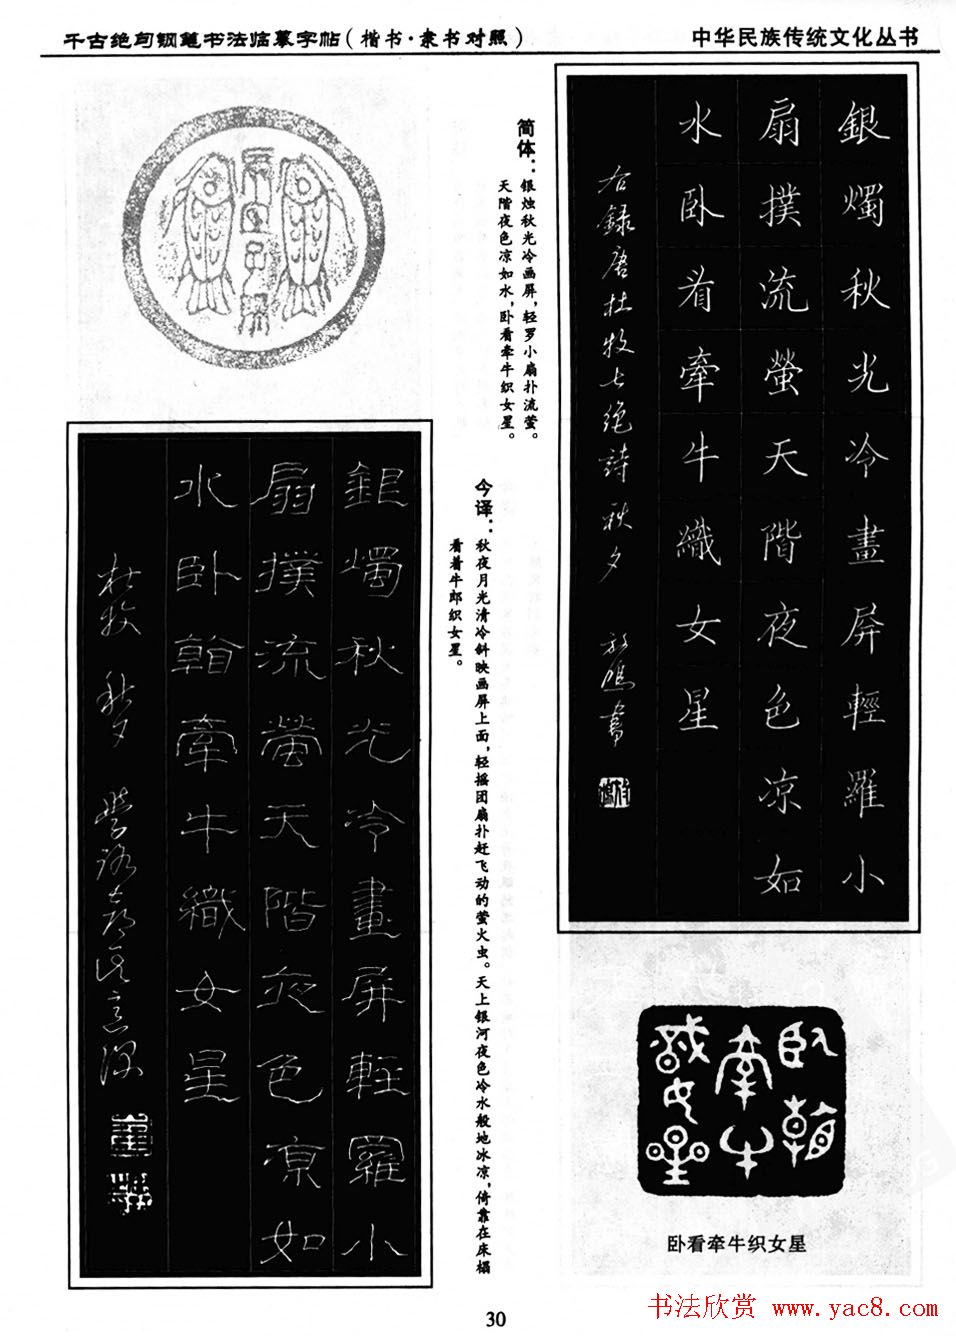 千古绝句钢笔书法临摹字帖(楷书·隶书对照)
中华民族传统文化丛书
銀燭秋光冷畫屏輕羅小
扇撲流螢天階夜色凉如
水卧看牽牛織女星
右録唐杜牧七绝詩秋夕
简体:银烛秋光冷画屏,轻罗小扇扑流萤。
天階夜色凉如水,卧看牵牛织女星。
今译:秋夜月光清冷斜映画屏上面,轻摇团扇扑赶飞动的萤火虫。天上银河夜色冷水般地冰凉,倚靠在床榻
看着牛郎织女星。
銀燭秋光冷畫屏輕羅小
扇撲流螢天階夜色凉如
水卧翰牽牛織女星
杜牧 秋夕
卧翰
牽牛
織女星
卧看牵牛织女星
30
书法欣赏 www.yac8.com